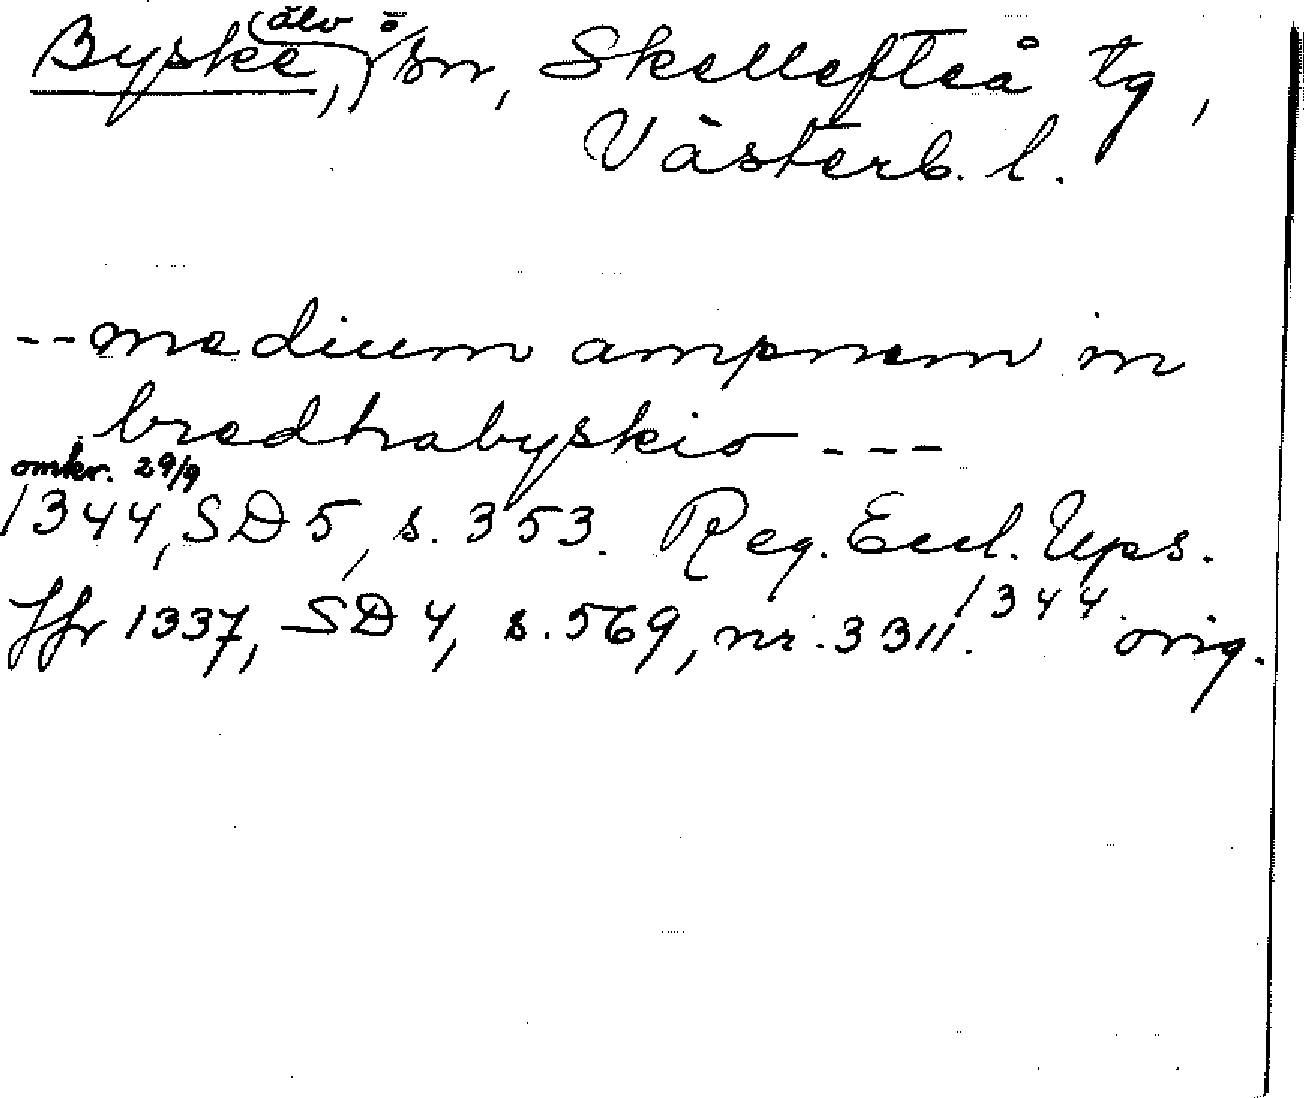 Byske, (älv ö) sn, Skellefteå tg,
Västerb. l.
-- medium ampnem in
bredhrabyskio ---
omkr. 29/9
1344, SD 5, s. 353. Reg. Eccl. Ups.
1344.
Jfr 1337, SD 4, s. 569, nr. 3311. orig.